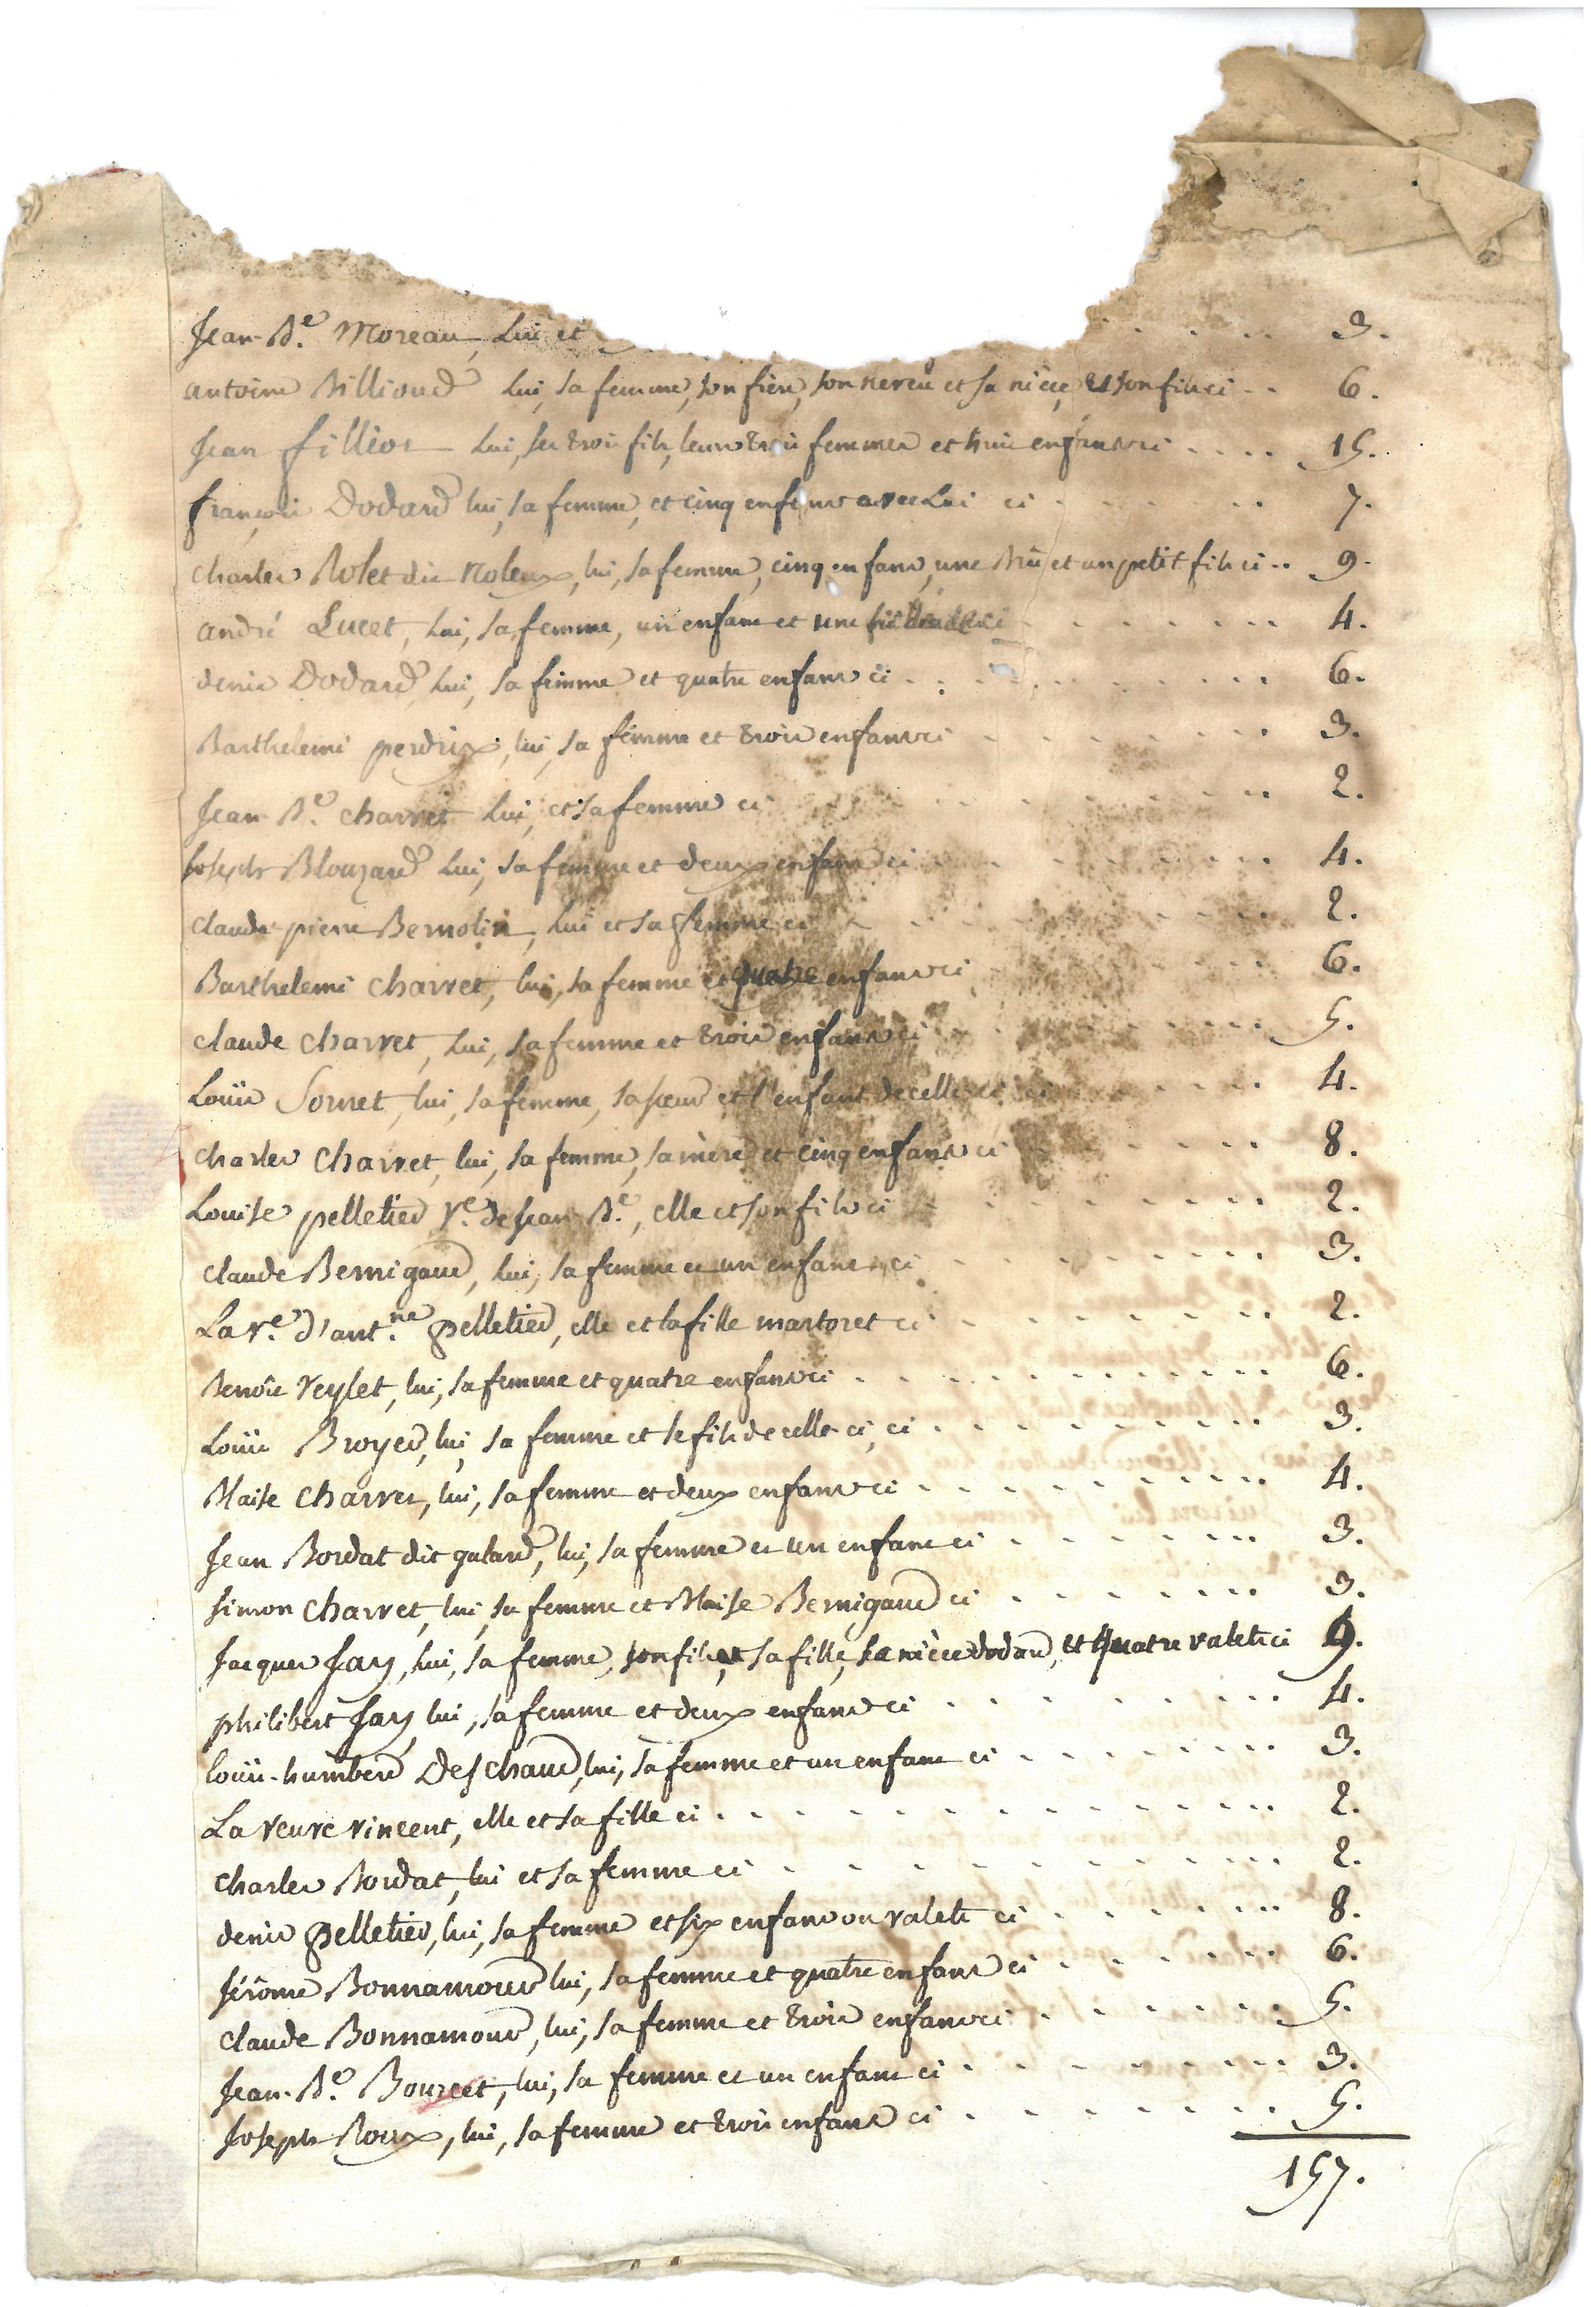 Jean-Bte. Moreau, lui et . . . . . 3.
antoine Billioud lui, sa femme, son frère, son neveu et sa nièce, et son fils ci . . 6.
Jean fillion lui, ses trois fils, leurs trois femmes et huit enfans ci . . . . 15.
françois Dodard lui, sa femme, et cinq enfans avec Lui ci . . . . 7.
charles Rolet dit noleux, lui, sa femme, cinq enfans, une Brû et un petit fils ci . . 9.
andré Lucet, lui, sa femme, un enfant et une ci . . . . 4.
denis Dodard, lui, sa femme et quatre enfans ci . . . . 6.
Barthelemi perdrix, lui, sa femme et trois enfans ci . . . . 3.
Jean-Bte. charvet lui, et sa femme ci . . . . 2.
Joseph Blouzard lui, sa femme et deux enfans ci . . . . 4.
claude pierre Bernolin, lui et sa femme ci . . . . 2.
Barthelemi charvet, lui, sa femme et quatre enfans ci . . . . 6.
claude charvet, lui, sa femme et trois enfans ci . . . . 5.
Loüis Sornet, lui, sa femme, sa soeur et l'enfant de celle ci ci . . . . 4.
charles charvet, lui, sa femme, sa mère et cinq enfans ci . . . . 8.
Louise pelletier ve. de Jean-Bte., elle et son fils ci . . . . 2.
claude Bernigaud, lui, sa femme et un enfant ci . . . . 3.
La ve. d'antne. pelletier, elle et la fille martoret ci . . . . 2.
Benoît Veylet, lui, sa femme et quatre enfans ci . . . . 6.
Loüis Broyer, lui, sa femme et le fils de celle-ci, ci . . . . 3.
Blaise charvet, lui, sa femme et deux enfans ci . . . . 4.
Jean Bordat dit galard, lui, sa femme et un enfant ci . . . . 3.
simon charvet, lui, sa femme et Blaise Bernigaud ci . . . . 3.
Jacques Jay, lui, sa femme, son fils, et sa fille, sa nièce dodard, et quatre valets ci 9.
philibert Jay, lui, sa femme et deux enfans ci . . . . 4.
loüis-humbert Deschaud, lui, sa femme et un enfant ci . . . . 3.
La veuve vincent, elle et sa fille ci . . . . 2.
charles Bordat, lui et sa femme ci . . . . 2.
denis pelletier, lui, sa femme et six enfans ou valets ci . . . . 8.
Jérôme Bonnamour lui, sa femme et quatre enfans ci . . . . 6.
claude Bonnamour, lui, sa femme et trois enfans ci . . . . 5.
Jean-Bte. Bourcet, lui, sa femme et un enfant ci . . . . 3.
Joseph Roux, lui, sa femme et trois enfans ci . . . . 5.
157.